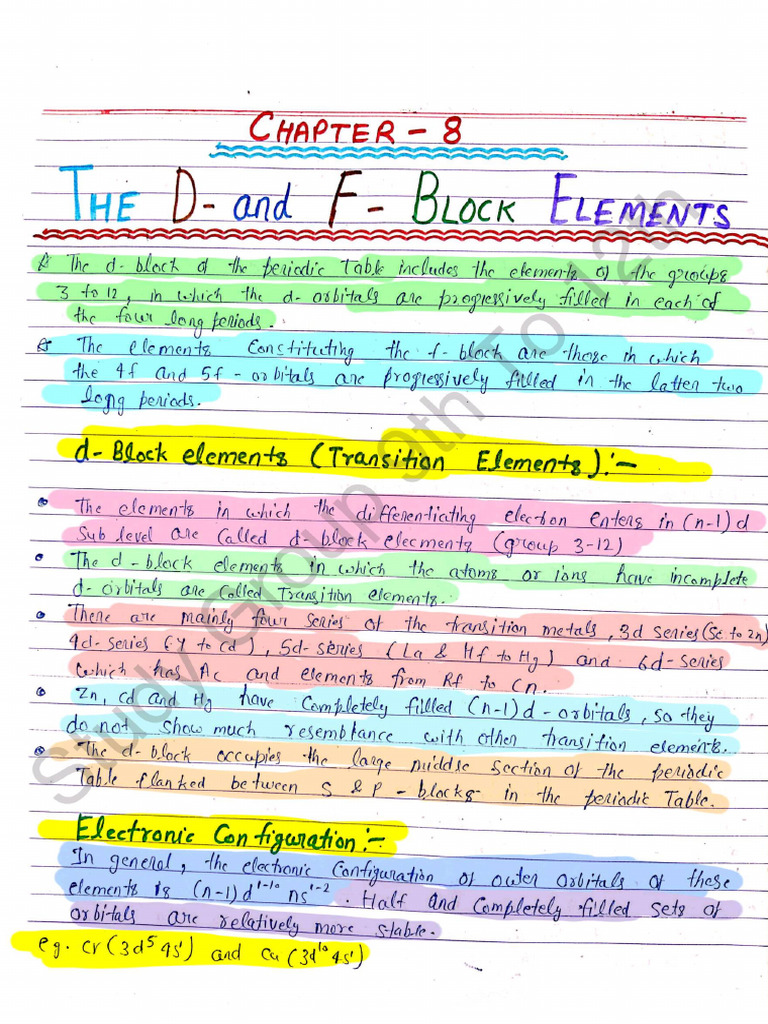 CHAPTER - 8
THE D- and F- BLOCK ELEMENTS
The d-block of the periodic Table includes the elements of the groups
3 to 12, in which the d-orbitals are progressively filled in each of
the four long periods.
The elements Constituting the f-block are those in which
the 4f and 5f-orbitals are progressively filled in the latter two
long periods.
d-Block elements (Transition Elements):-
The elements in which the differentiating election enters in (n-1) d
Sub level are Called d-block elecments (group 3-12)
The d-block elements in which the atoms or ions have incomplete
d-orbitals are Called Transition elements.
There are mainly four series of the transition metals, 3d series (Sc to zn)
4d-series (Y to Cd), 5d-series (La & Hf to Hg) and 6d-series
which has Ac and elements from Rf to Cn.
Zn, cd and Hg have Completely filled (n-1)d-orbitals, so they
do not show much resembtance with other transition elements.
The d-block occupies the large middse section of the periodic
Table flanked between S & P-blocks in the periodic Table.
Electronic Configuration:-
In general, the electronic Configuration of outer Orbitals of these
elements is (n-1) d¹⁻¹⁰ ns¹⁻². Half and Completely filled sets of
orbitals are relatively more stable.
eg. Cr (3d⁵ 4s¹) and Cu (3d¹⁰ 4s¹)
Study Group 9th To 12th